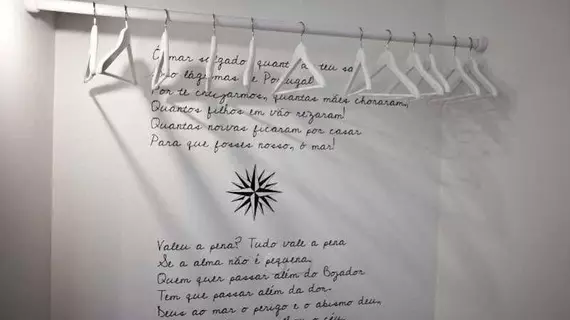 Ó mar salgado, quant teu sa
lágrimas e Portugal
Por te cruzarmos, quantas mães choraram,
Quantos filhos em vão rezaram!
Quantas noivas ficaram por casar
Para que fosses nosso, ó mar!
Valeu a pena? Tudo vale a pena
Se a alma não é pequena.
Quem quer passar além do Bojador
Tem que passar além da dor.
Deus ao mar o perigo e o abismo deu,
o céu.